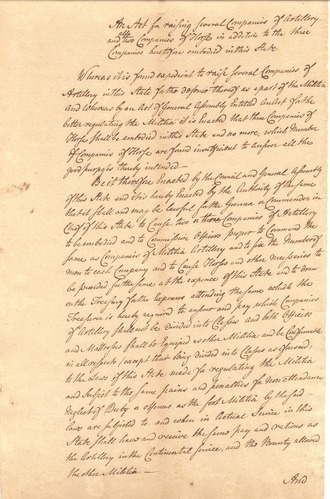 An Act for raising several Companies of Artillery
and two Companies of Horse in addition to the three
Companies heretofore embodied in this State.
Whereas it is found expedient to raise several Companies of
Artillery in this State for the defence thereof as a part of the Militia
and whereas by an Act of General Assembly Entitled an Act for the
better regulating the Militia it is enacted that three Companies of
Horse shall be embodied in this State and no more, which Number
of Companies of Horse are found insufficient to answer all the
good purposes thereby intended
Be it therefore Enacted by the Council and General Assembly
of this State and it is hereby Enacted by the Authority of the same
that it shall and may be lawful for the Governor or Commander in
Chief of this State to Cause two or three Companies of Artillery
to be embodied and to Commission Officers proper to Command the
same as Companies of Militia Artillery and to fix the Number of
men to each Company and to Cause Horses and other necessaries to
be provided for the same at the expence of this State and to draw
on the Treasury for the expences attending the same which the
Treasurer is hereby required to answer and pay, which Companies
of Artillery shall not be divided into Classes and both Officers
and Matrosses shall be Equiped as other Militia and be Conformable
in all respects (except their being divided into Classes as aforesaid,
to the Laws of this State made for regulating the Militia
and subject to the same pains and penalties for Non attendance
Neglect of Duty or offences as the foot Militia by the said
laws are subjected to and when in Actual Service in this
State shall have and receive the same pay and rations as
the Artillery in the Continental Service, and the Bounty allowed
the other Militia
And